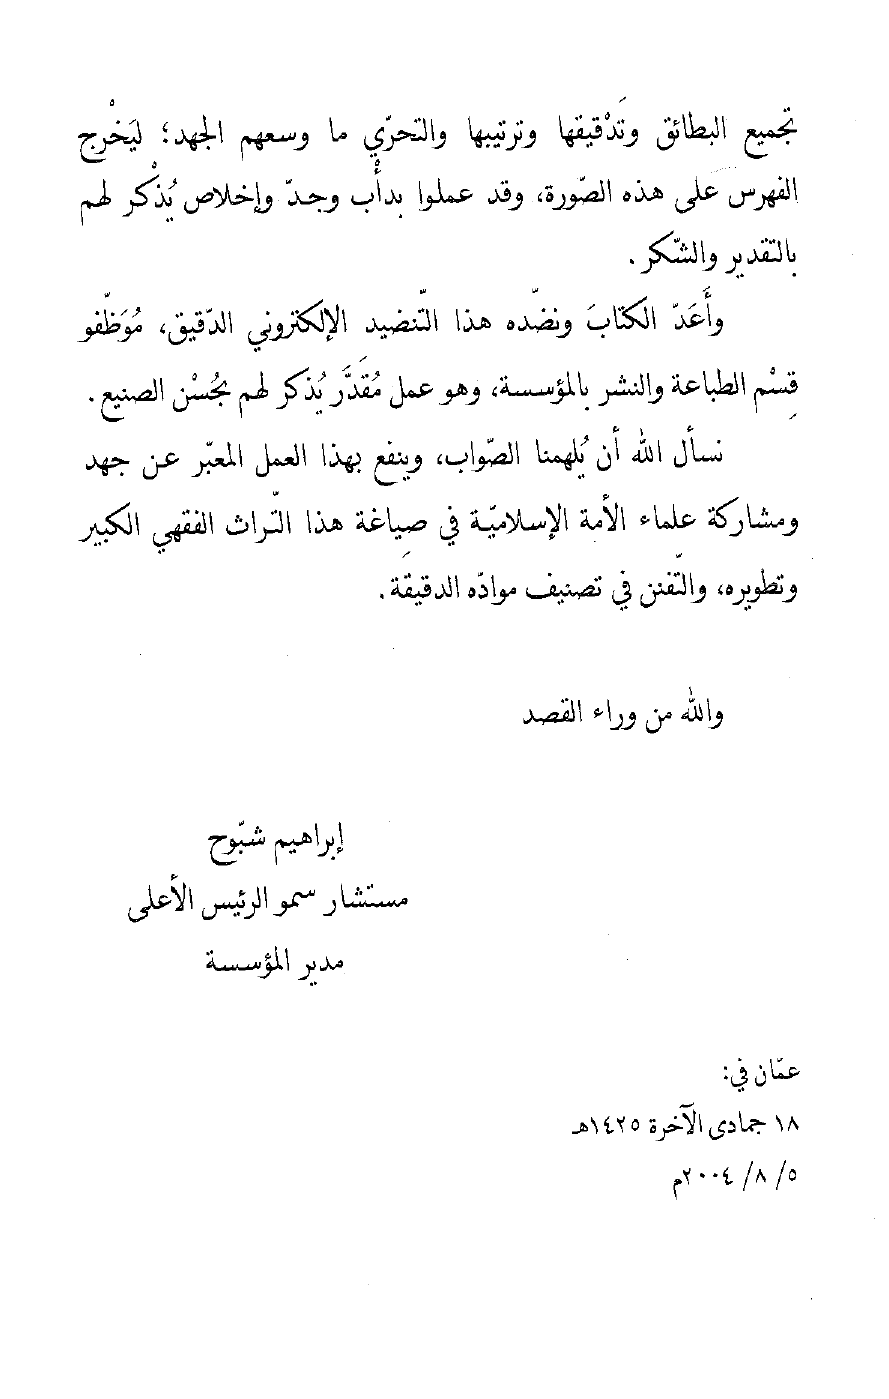 تجميع البطائق وتَدْقيقها وترتيبها والتحرّي ما وسعهم الجهد؛ ليَخْرج
الفهرس على هذه الصّورة، وقد عملوا بدأْب وجدّ وإخلاص يُذْكر لهم
بالتقدير والشّكر.
وأَعَدّ الكتابَ ونضّده هذا التّنضيد الإلكتروني الدّقيق، مُوَظّفو
قِسْم الطباعة والنشر بالمؤسسة، وهو عمل مُقَدَّر يُذكر لهم بحُسْن الصنيع.
نسأل الله أن يُلهمنا الصّواب، وينفع بهذا العمل المعبّر عن جهد
ومشاركة علماء الأمة الإسلاميّة في صياغة هذا التّراث الفقهي الكبير
وتطويره، والتّفنن في تصنيف موادّه الدقيقة.
والله من وراء القصد
إبراهيم شبّوح
مستشار سمو الرئيس الأعلى
مدير المؤسسة
عمّان في:
١٨ جمادى الآخرة ١٤٢٥هـ
٥/ ٨/ ٢٠٠٤م